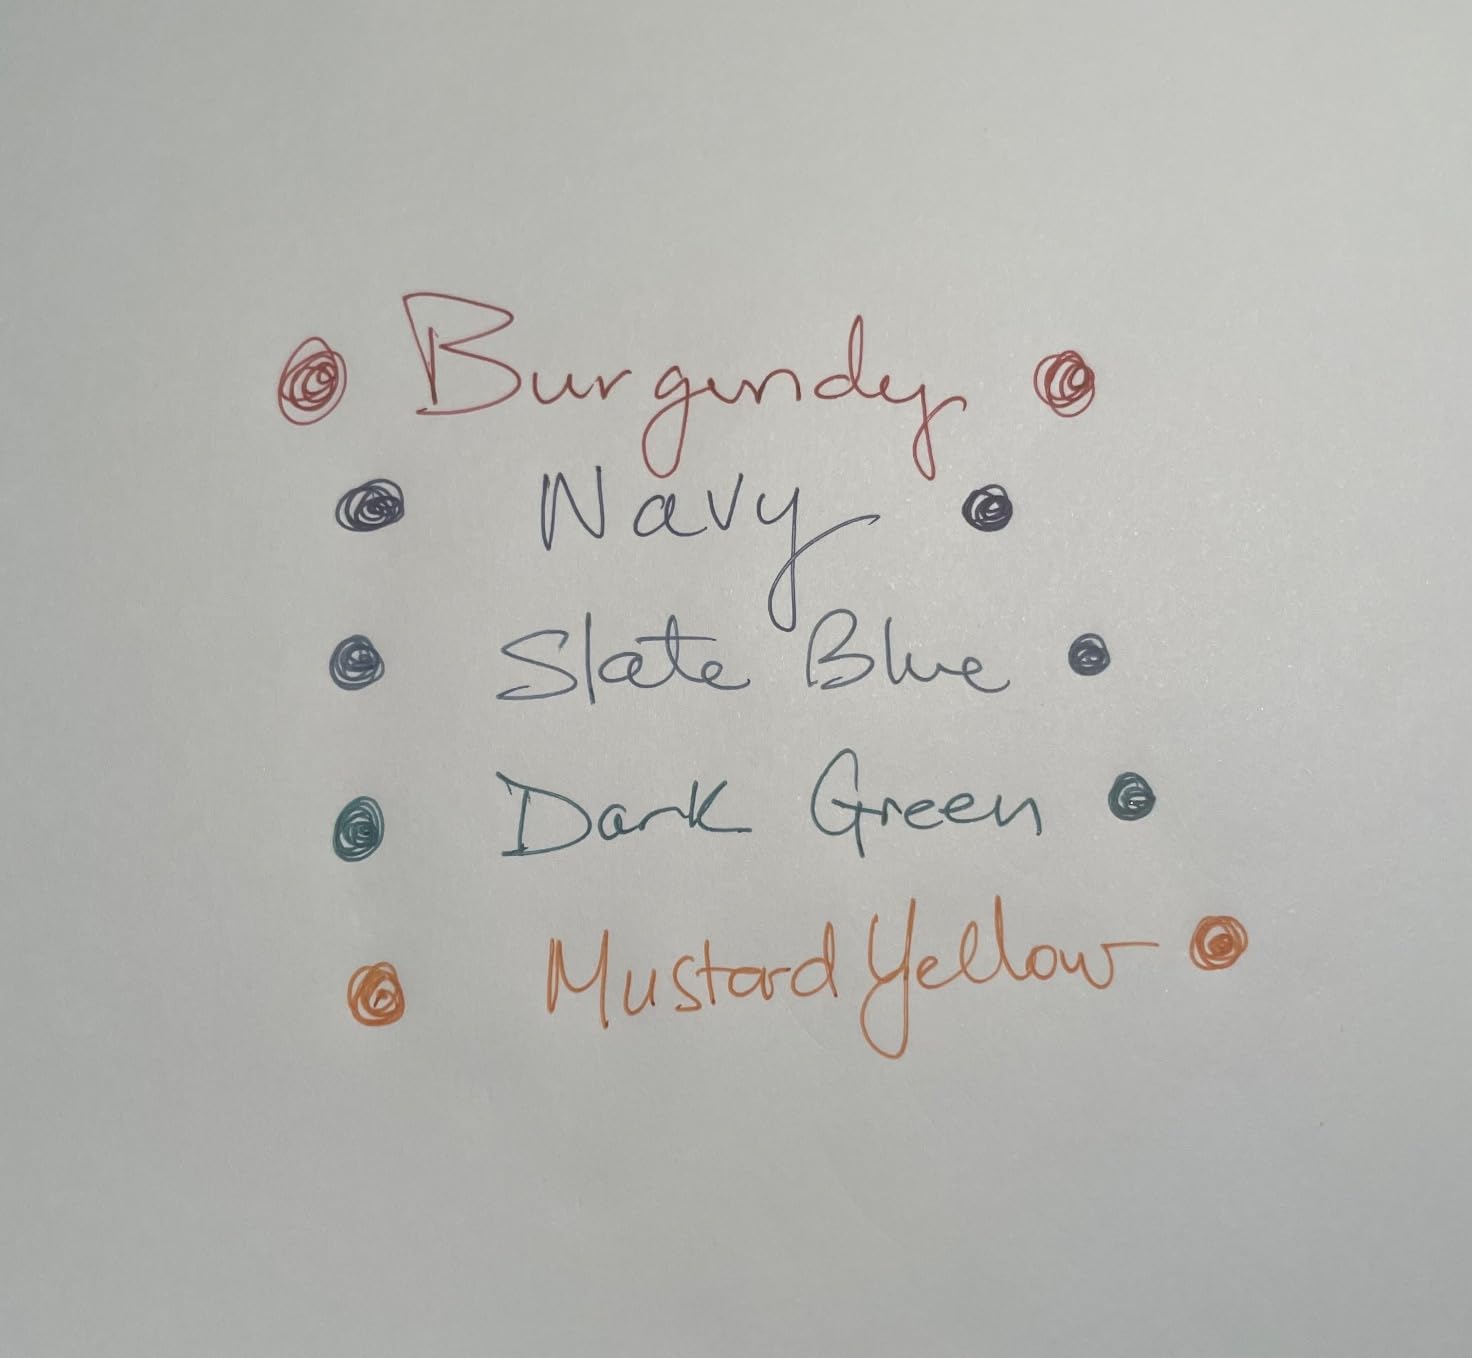 Burgundy
Navy
Slate Blue
Dark Green
Mustard Yellow